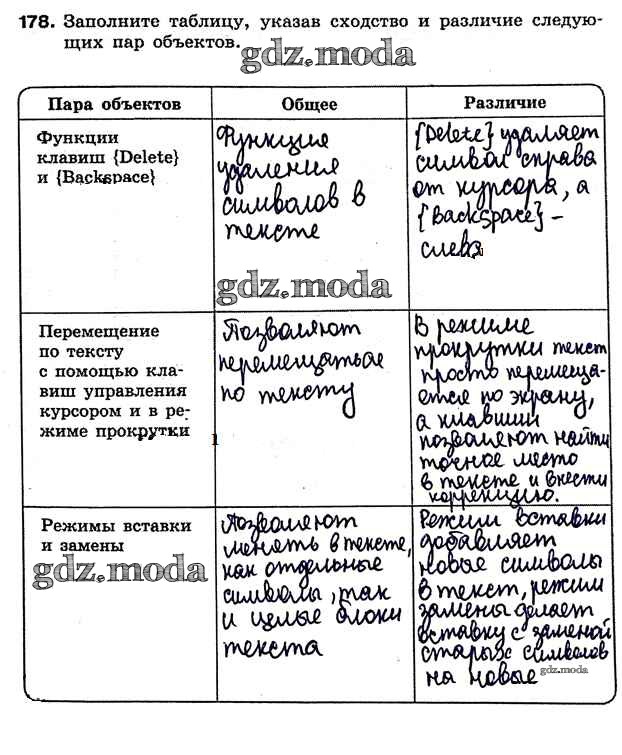 178. Заполните таблицу, указав сходство и различие следую-
щих пар объектов.
gdz.moda
Пара объектов
Общее
Различие
Функции
клавиш {Delete}
и {Backspace}
Функция
удаления
символов в
тексте
{Delete} удаляет
символ справа
от курсора, а
{Backspace} –
слева
gdz.moda
Перемещение
по тексту
с помощью кла-
виш управления
курсором и в ре-
жиме прокрутки
Позволяют
перемещаться
по тексту
1
В режиме
прокрутки текст
просто перемеща-
ется по экрану,
а клавиши
позволяют найти
точное место
в тексте и внести
коррекцию.
Режимы вставки
и замены
gdz.moda
Позволяют
менять в тексте,
как отдельные
символы, так
и целые блоки
текста
Режим вставки
добавляет
новые символы
в текст, режим
замены делает
вставку с заменой
старых символов
на новые
gdz.moda